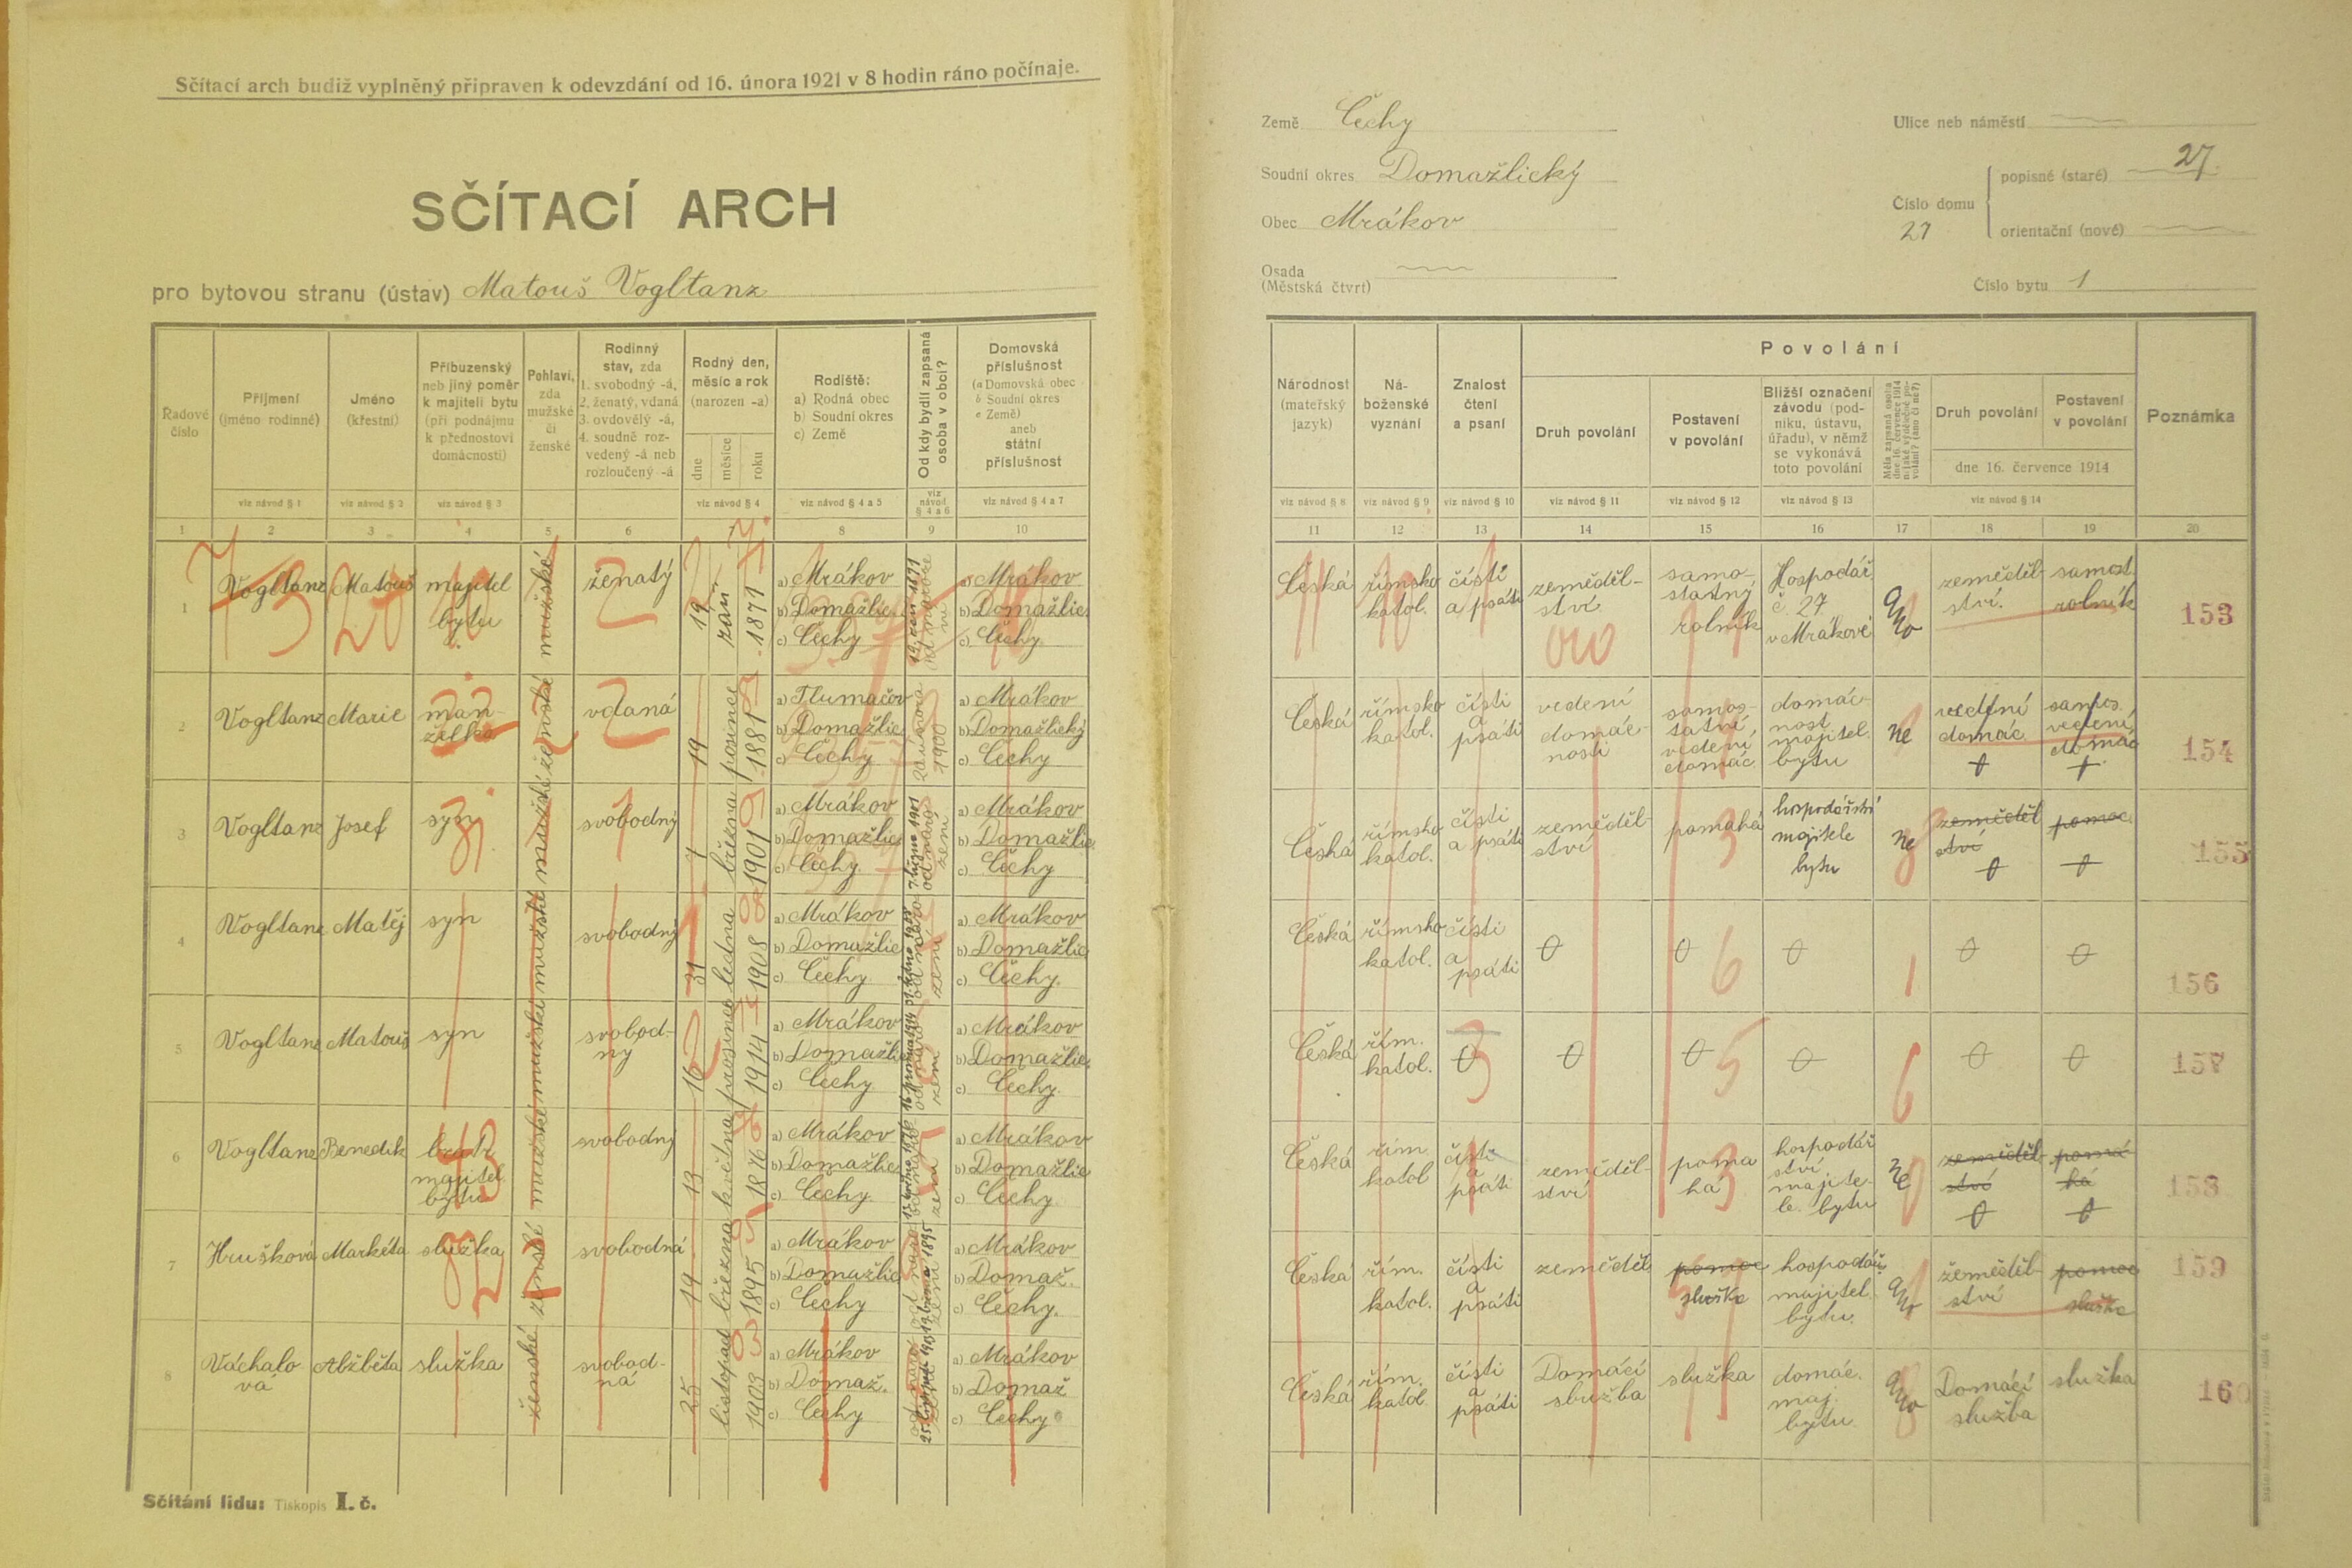 Sčítací arch budiž vyplněný připraven k odevzdání od 16. února 1921 v 8 hodin ráno počínaje.
SČÍTACÍ ARCH
pro bytovou stranu (ústav) Matouš Vogltanz
Země Čechy
Soudní okres Domažlický
Obec Mrákov
Osada
(Městská čtvrť)
Ulice neb náměstí
Číslo domu
27
popisné (staré) 27.
orientační (nové)
Číslo bytu 1
Řadové číslo
Příjmení (jméno rodinné)
viz návod § 1
Jméno (křestní)
viz návod § 2
Příbuzenský neb jiný poměr k majiteli bytu (při podnájmu k přednostovi domácnosti)
viz návod § 3
Pohlaví, zda mužské či ženské
Rodinný stav, zda 1. svobodný -á, 2. ženatý, vdaná 3. ovdovělý -á, 4. soudně rozvedený -á neb rozloučený -á
Rodný den, měsíc a rok (narozen -a)
dne měsíce roku
viz návod § 4
Rodiště: a) Rodná obec b) Soudní okres c) Země
viz návod § 4 a 5
Od kdy bydlí zapsaná osoba v obci?
viz návod § 4 a 6
Domovská příslušnost (a Domovská obec b Soudní okres c Země) aneb státní příslušnost
viz návod § 4 a 7
Národnost (mateřský jazyk)
viz návod § 8
Náboženské vyznání
viz návod § 9
Znalost čtení a psaní
viz návod § 10
Povolání
Druh povolání
viz návod § 11
Postavení v povolání
viz návod § 12
Bližší označení závodu (podniku, ústavu, úřadu), v němž se vykonává toto povolání
viz návod § 13
Měla zapsaná osoba dne 16. července 1914 nějaké výdělečné povolání? (ano či ne?)
Druh povolání
Postavení v povolání
dne 16. července 1914
viz návod § 14
Poznámka
1 2 3 4 5 6 7 8 9 10 11 12 13 14 15 16 17 18 19 20
1 Vogltanz Matouš majitel bytu mužské ženatý 19 září 1871 a) Mrákov b) Domažlic c) Čechy 19. září 1871 od narození a) Mrákov b) Domažlic c) Čechy. Česká římsko katol. čísti a psáti zemědělství samostatný rolník Hospodář. č. 27 v Mrákově Ano zemědělství. samost. rolník 153
2 Vogltanz Marie manželka ženské vdaná 19 prosince 1881 a) Tlumačov b) Domažlic c) Čechy 20. února 1900 a) Mrákov b) Domažlický c) Čechy Česká římsko katol. čísti a psáti vedení domácnosti samostatní vedení domác. domácnost majitel. bytu ne vedení domác. samos. vedení domác. 0 0 154
3 Vogltanz Josef syn mužské svobodný 7 března 1901 a) Mrákov b) Domažlic c) Čechy. od narození a) Mrákov b) Domažlic. c) Čechy Česká římsko katol. čísti a psáti zemědělství pomáhá hospodářství majitele bytu ne zemědělství pomoc. 0 0 155
4 Vogltanz Matěj syn mužské svobodný 31 ledna 1908 a) Mrákov b) Domažlic c) Čechy. od narození a) Mrákov b) Domažlic c) Čechy. Česká římsko katol. čísti a psáti 0 0 0 0 0 156
5 Vogltanz Matouš syn mužské svobodný 16 prosince 1914 a) Mrákov b) Domažlic c) Čechy. od narození a) Mrákov b) Domažlic. c) Čechy. Česká řím. katol. 0 0 0 0 0 0 157
6 Vogltanz Benedik bratr majitel. bytu mužské svobodný 13 května 1876 a) Mrákov b) Domažlic c) Čechy. a) Mrákov b) Domažlic c) Čechy. Česká řím. katol čísti a psáti zemědělství pomahá hospodářství majitele. bytu Ne zemědělství pomáhá 0 0 158
7 Hrušková Markéta služka ženské svobodná 19 března 1895 a) Mrákov b) Domažlic c) Čechy a) Mrákov b) Domaž. c) Čechy. Česká řím. katol. čísti a psáti zeměděl. pomoc služka hospodář. majitel. bytu. Ano zemědělství pomoc služka 159
8 Váchalová Alžběta služka ženské svobodná 25 listopad 1903 a) Mrákov b) Domaž. c) Čechy a) Mrákov b) Domaž c) Čechy Česká řím. katol. čísti a psáti Domácí služba služka domác. maj. bytu. Ano Domácí služba služka 160
Sčítání lidu: Tiskopis I. č.